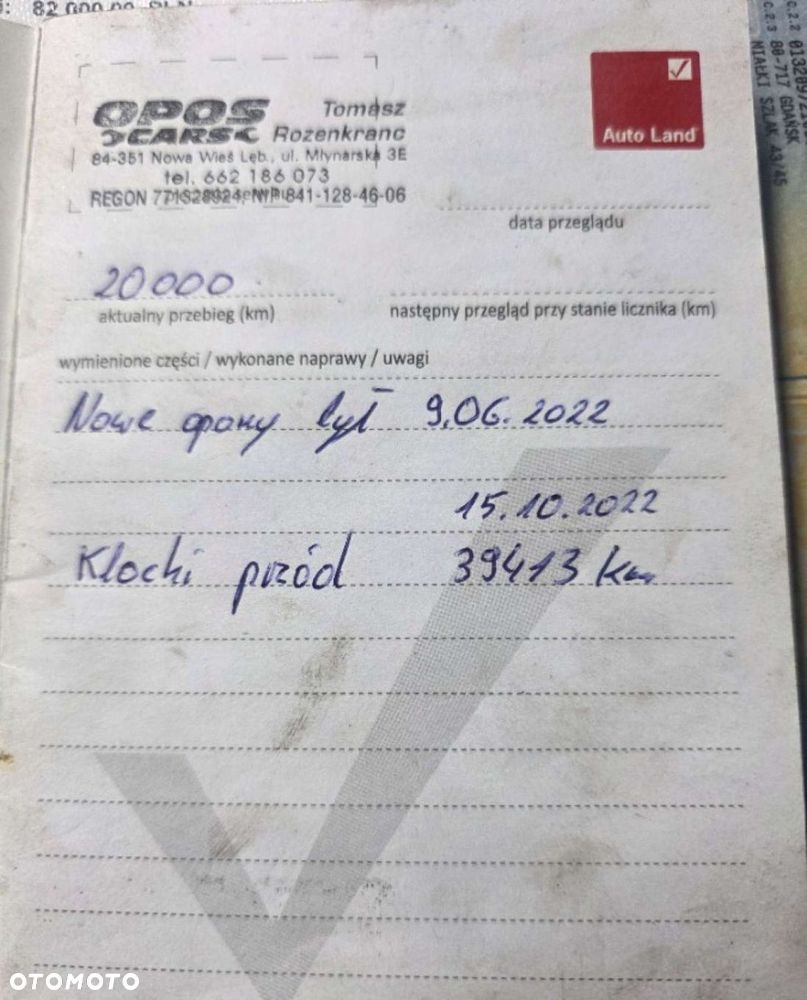 82 000,00 PLN
OPOS Tomasz
CARS Rozenkranc
84-351 Nowa Wieś Lęb., ul. Młynarska 3E
tel. 662 186 073
REGON 771528924, NIP 841-128-46-06
Auto Land
data przeglądu
20000
aktualny przebieg (km)
następny przegląd przy stanie licznika (km)
wymienione części / wykonane naprawy / uwagi
Nowe opony tył 9.06.2022
15.10.2022
Klocki przód 39413 km
C.2.2
C.2.3 80-717 GDAŃSK
MIAŁKI SZLAK 43/45
OTOMOTO